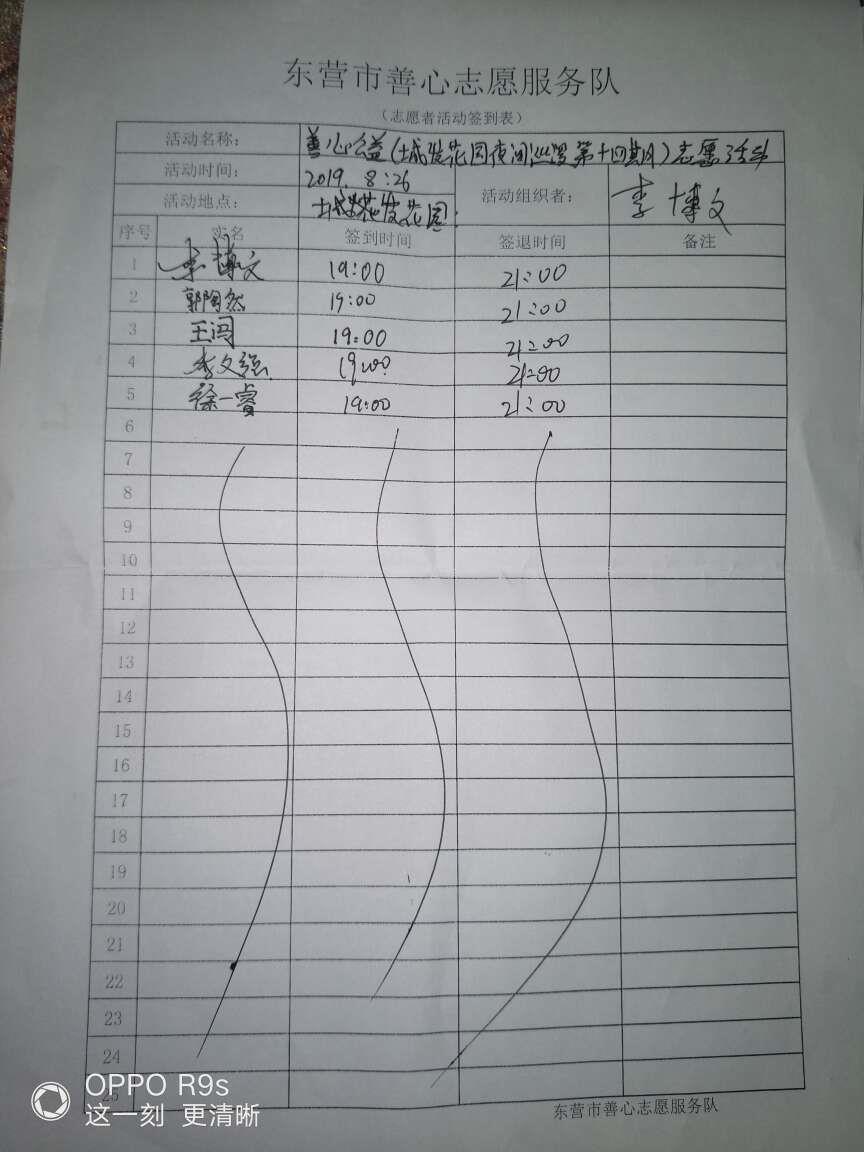 东营市善心志愿服务队
（志愿者活动签到表）
活动名称： 善心公益（城发花园夜间巡逻第十四期）志愿活动
活动时间： 2019.8:26
活动地点： 城发花园 活动组织者： 李博文
序号 实名 签到时间 签退时间 备注
1 李博文 19:00 21:00
2 郭陶然 19:00 21:00
3 王冯 19:00 21:00
4 李文强 19:00 21:00
5 徐一睿 19:00 21:00
6
7
8
9
10
11
12
13
14
15
16
17
18
19
20
21
22
23
24
25
东营市善心志愿服务队
OPPO R9s
这一刻 更清晰